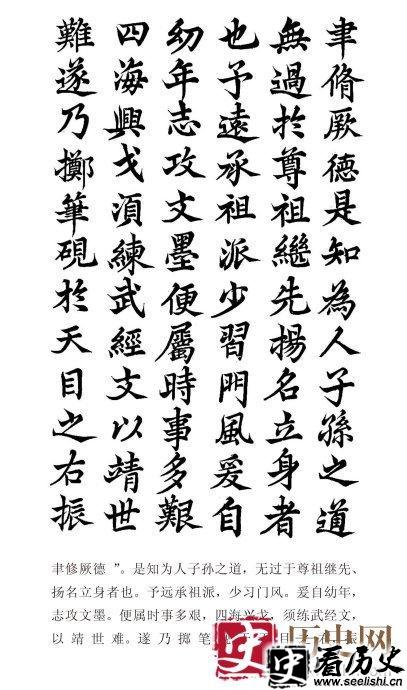 聿脩厥德是知為人子孫之道
無過於尊祖繼先揚名立身者
也予遠承祖派少習門風爰自
幼年志攻文墨便屬時事多艱
四海興戈須練武經文以靖世
難遂乃擲筆硯於天目之右振
聿修厥德 ”。是知为人子孙之道，无过于尊祖继先、
扬名立身者也。予远承祖派，少习门风。爰自幼年，
志攻文墨。便属时事多艰，四海兴戈，须练武经文，
以靖世难。遂乃掷笔
看历史
www.seelishi.cn